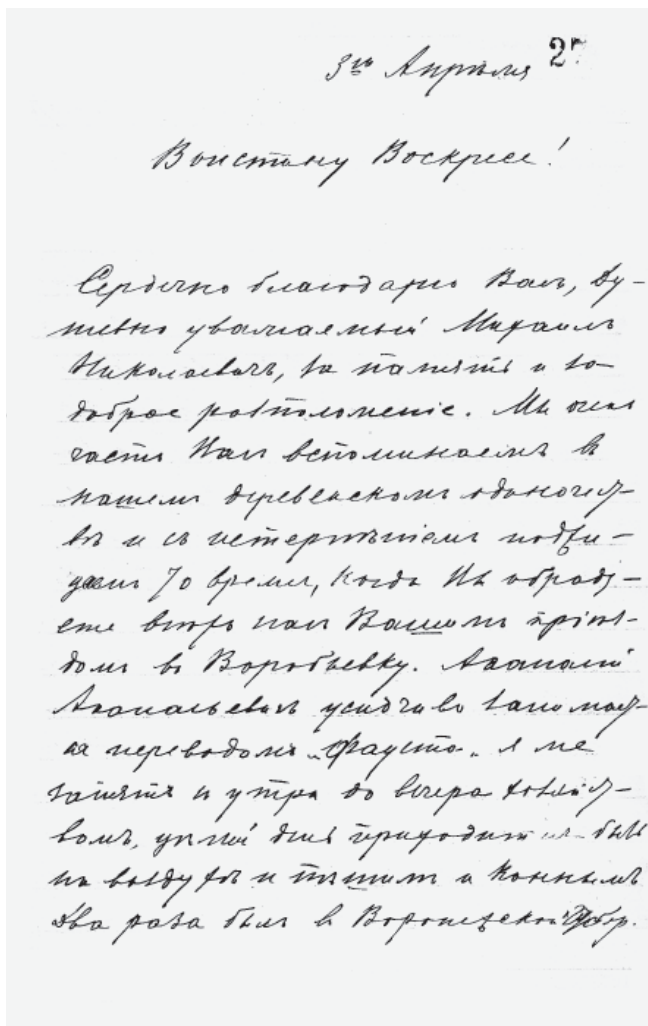 3го Апрѣля 27
Воистину Воскресе!
Сердечно благодарю Васъ, ду-
шевно уважаемый Михаилъ
Николаевичъ, за память и за
доброе расположеніе. Мы очень
часто Васъ вспоминаемъ въ
нашемъ деревенскомъ одиночест-
вѣ и съ нетерпѣніемъ поджи-
даемъ то время, когда Вы обраду-
ете вновь насъ Вашимъ пріѣз-
домъ въ Воробьевку. Аѳанасій
Аѳанасьевичъ усидчиво занимает-
ся переводомъ „Фауста„ я же
занятъ съ утра до вечера хозяйст-
вомъ, цѣлый день приходится быть
на воздухѣ и пѣшимъ и коннымъ
два раза былъ въ Воронежской Губер.